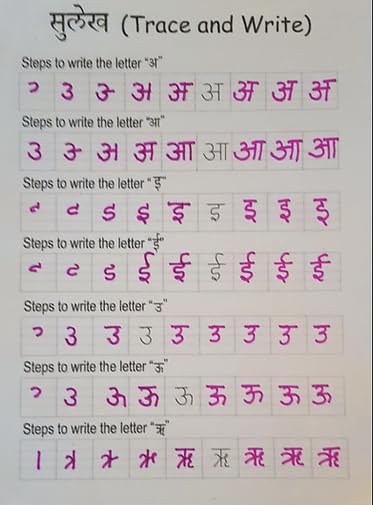 सुलेख (Trace and Write)
Steps to write the letter "अ"
अ अ अ अ अ
Steps to write the letter "आ"
उ अ आ आ आ आ आ
Steps to write the letter "इ"
इ इ इ इ इ
Steps to write the letter "ई"
ई ई ई ई ई ई
Steps to write the letter "उ"
उ उ उ उ उ उ उ
Steps to write the letter "ऊ"
ऊ ऊ ऊ ऊ ऊ ऊ ऊ
Steps to write the letter "ऋ"
ऋ ऋ ऋ ऋ ऋ